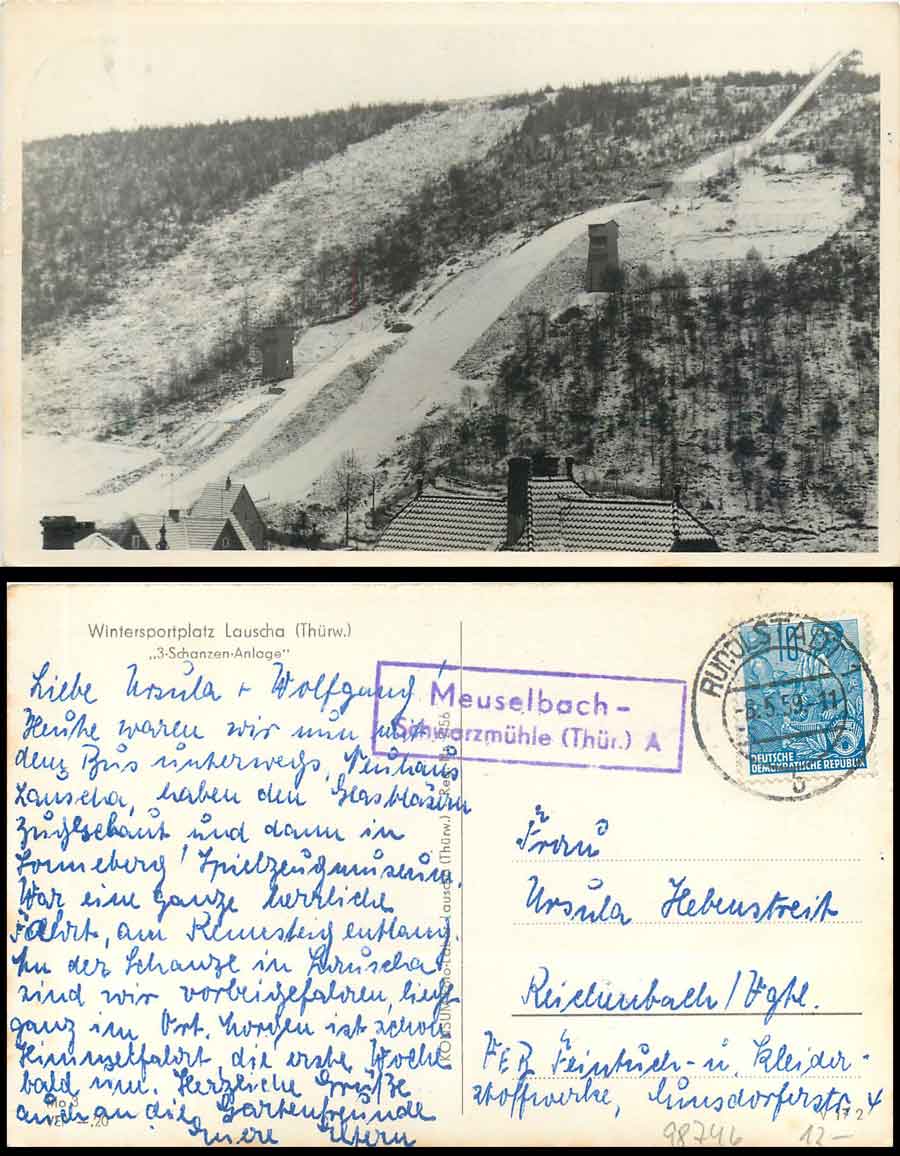 Wintersportplatz Lauscha (Thürw.)
„3-Schanzen-Anlage"
Liebe Ursula + Wolfgang!
Heute waren wir nun mit
dem Bus unterwegs, Neuhaus
Lauscha, haben den Glasbläsern
zugeschaut und dann in
Sonneberg! Spielzeugmuseum.
War eine ganze herrliche
Fahrt, am Rennsteig entlang.
An der Schanze in Lauscha
sind wir vorbeigefahren, liegt
ganz im Ort. Morgen ist schon
Himmelfahrt, die erste Woche
bald um. Herzliche Grüße
auch an die Gartenfreunde
Euere Eltern
Mo 3
Meuselbach-
Schwarzmühle (Thür.) A
RUDOLSTADT 1
6.5.59.-11
b
10
DEUTSCHE
DEMOKRATISCHE REPUBLIK
Frau
Ursula Hebenstreit
Reichenbach/Vgtl.
VEB Feintuch- u. Kleider-
stoffwerke, Cunsdorferstr. 4
V 17 2
98746 12-